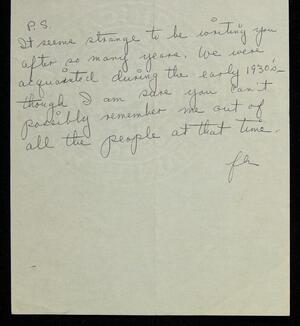 P.S.
It seems strange to be writing you
after so many years. We were
acquainted during the early 1930's-
though I am sure you can't
possibly remember me out of
all the people at that time.